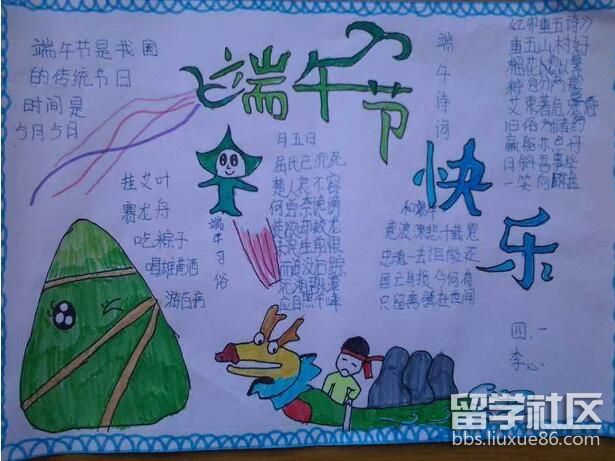 端午节是我国
的传统节日
时间是
5月5月
端午节
快乐
挂艾叶
赛龙舟
吃粽子
喝雄黄酒
游百病
端午习俗
月五日
屈氏已沉死
楚人哀不容
何尝奈
徒欲却蛟龙
未泯生前恨
而追没后踪
沉湘
应
端午诗词
和端午
竞渡深悲千载冤
忠魂一去讵能还
国亡身殒今何有
只留离骚在世间
重五山村好
艾束著危冠
旧俗方储药
羸躯亦点丹
日斜吾事毕
一笑向杯盘
四、一
李心
留学社区
bbs.liuxue86.com